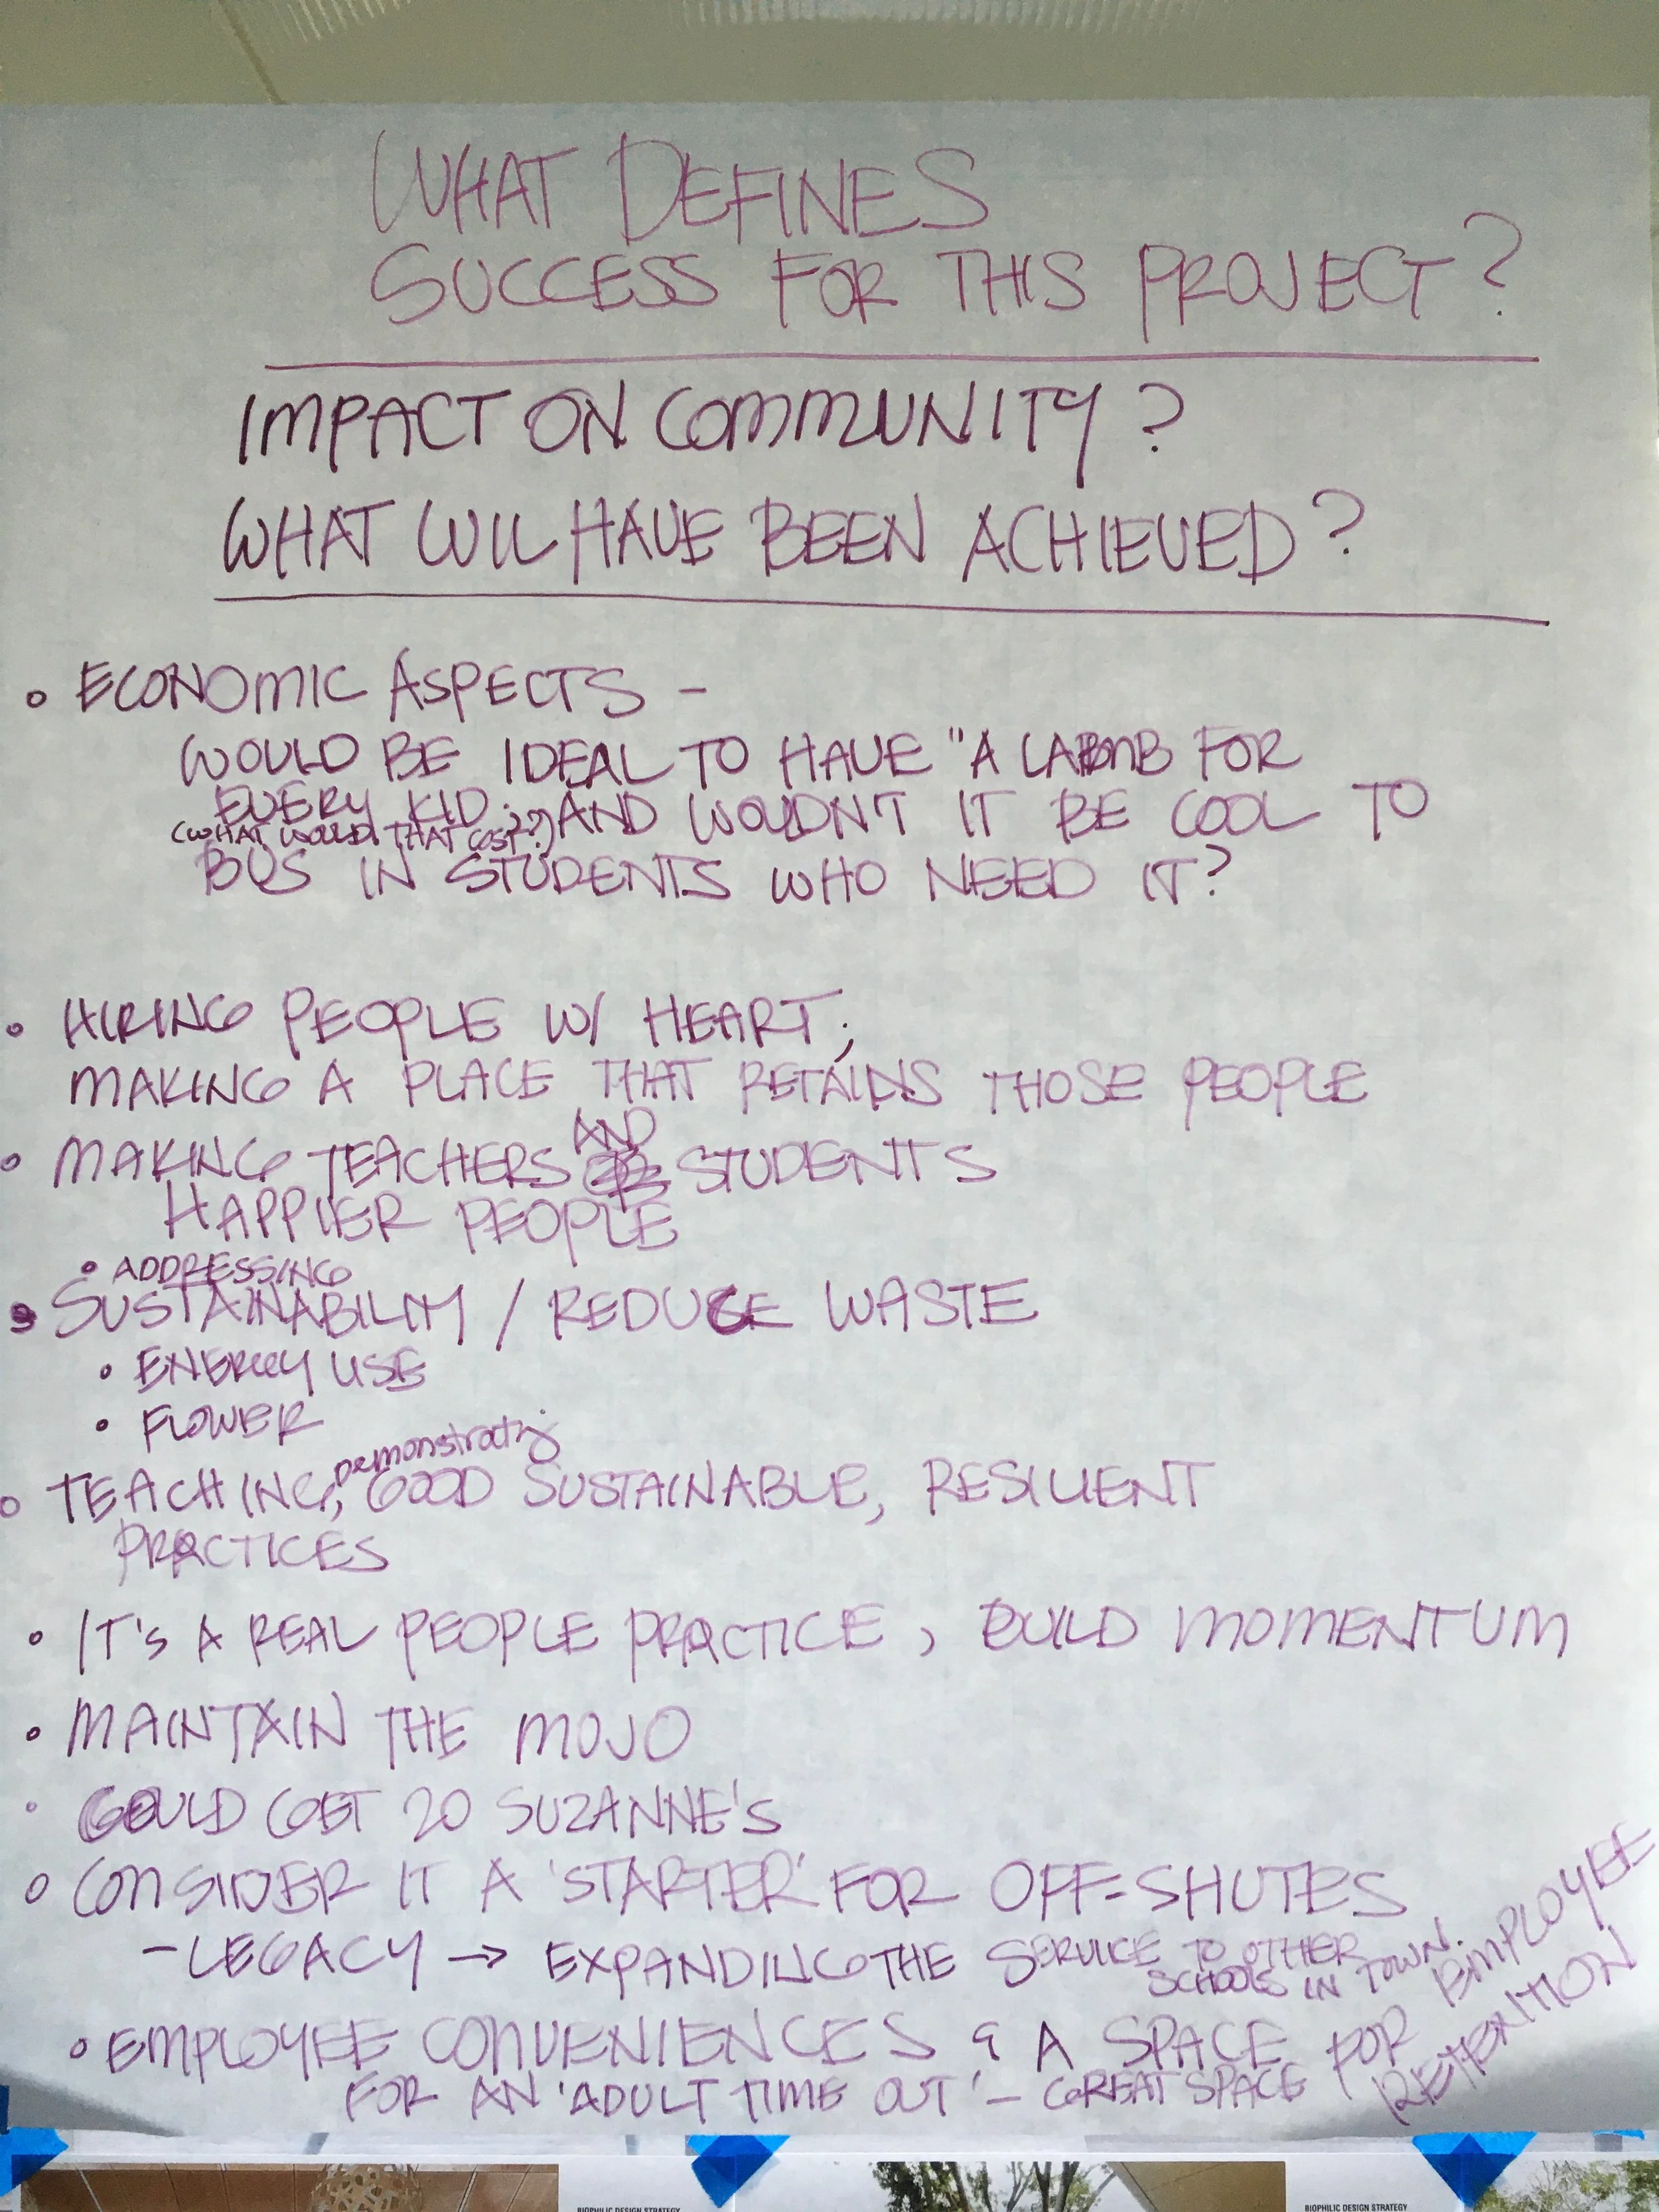 WHAT DEFINES
SUCCESS FOR THIS PROJECT?
IMPACT ON COMMUNITY?
WHAT WIL HAVE BEEN ACHIEVED?
• ECONOMIC ASPECTS -
WOULD BE IDEAL TO HAVE "A FOR
EVERY KID AND WOULDN'T IT BE COOL TO
(WHAT WOULD THAT COST??)
BUS IN STUDENTS WHO NEED IT?
• HIRING PEOPLE W/ HEART;
MAKING A PLACE THAT RETAINS THOSE PEOPLE
AND
• MAKING TEACHERS STUDENTS
HAPPIER PEOPLE
• ADDRESSING
• SUSTAINABILITY / REDUCE WASTE
• ENERGY USE
• FLOWER
DEMONSTRATING
• TEACHING, GOOD SUSTAINABLE, RESILIENT
PRACTICES
• IT'S A REAL PEOPLE PRACTICE, BUILD MOMENTUM
• MAINTAIN THE MOJO
• COULD GET 20 SUZANNE'S
• CONSIDER IT A 'STARTER' FOR OFF-SHUTES
- LEGACY → EXPANDING THE SERVICE TO OTHER
SCHOOLS IN TOWN.
• EMPLOYEE CONVENIENCES & A SPACE
FOR AN 'ADULT TIME OUT' - GREAT SPACE FOR EMPLOYEE
RETENTION
BIOPHILIC DESIGN STRATEGY
BIOPHILIC DESIGN STRATEGY